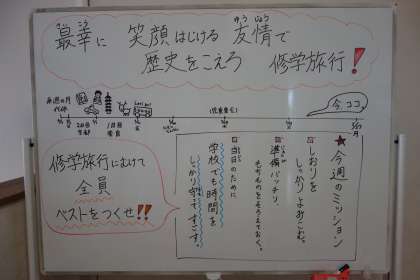 最幸に 笑顔はじける 友情で
さいこう
ゆうじょう
歴史をこえろ 修学旅行!
今ココ
★今週のミッション
しおりを
しっかりよみこむ。
準備バッチリ
もちものをそろえておく。
当日のために
学校でも時間を
しっかり守ってすごす。
修学旅行にむけて
全員
ベストをつくせ!!